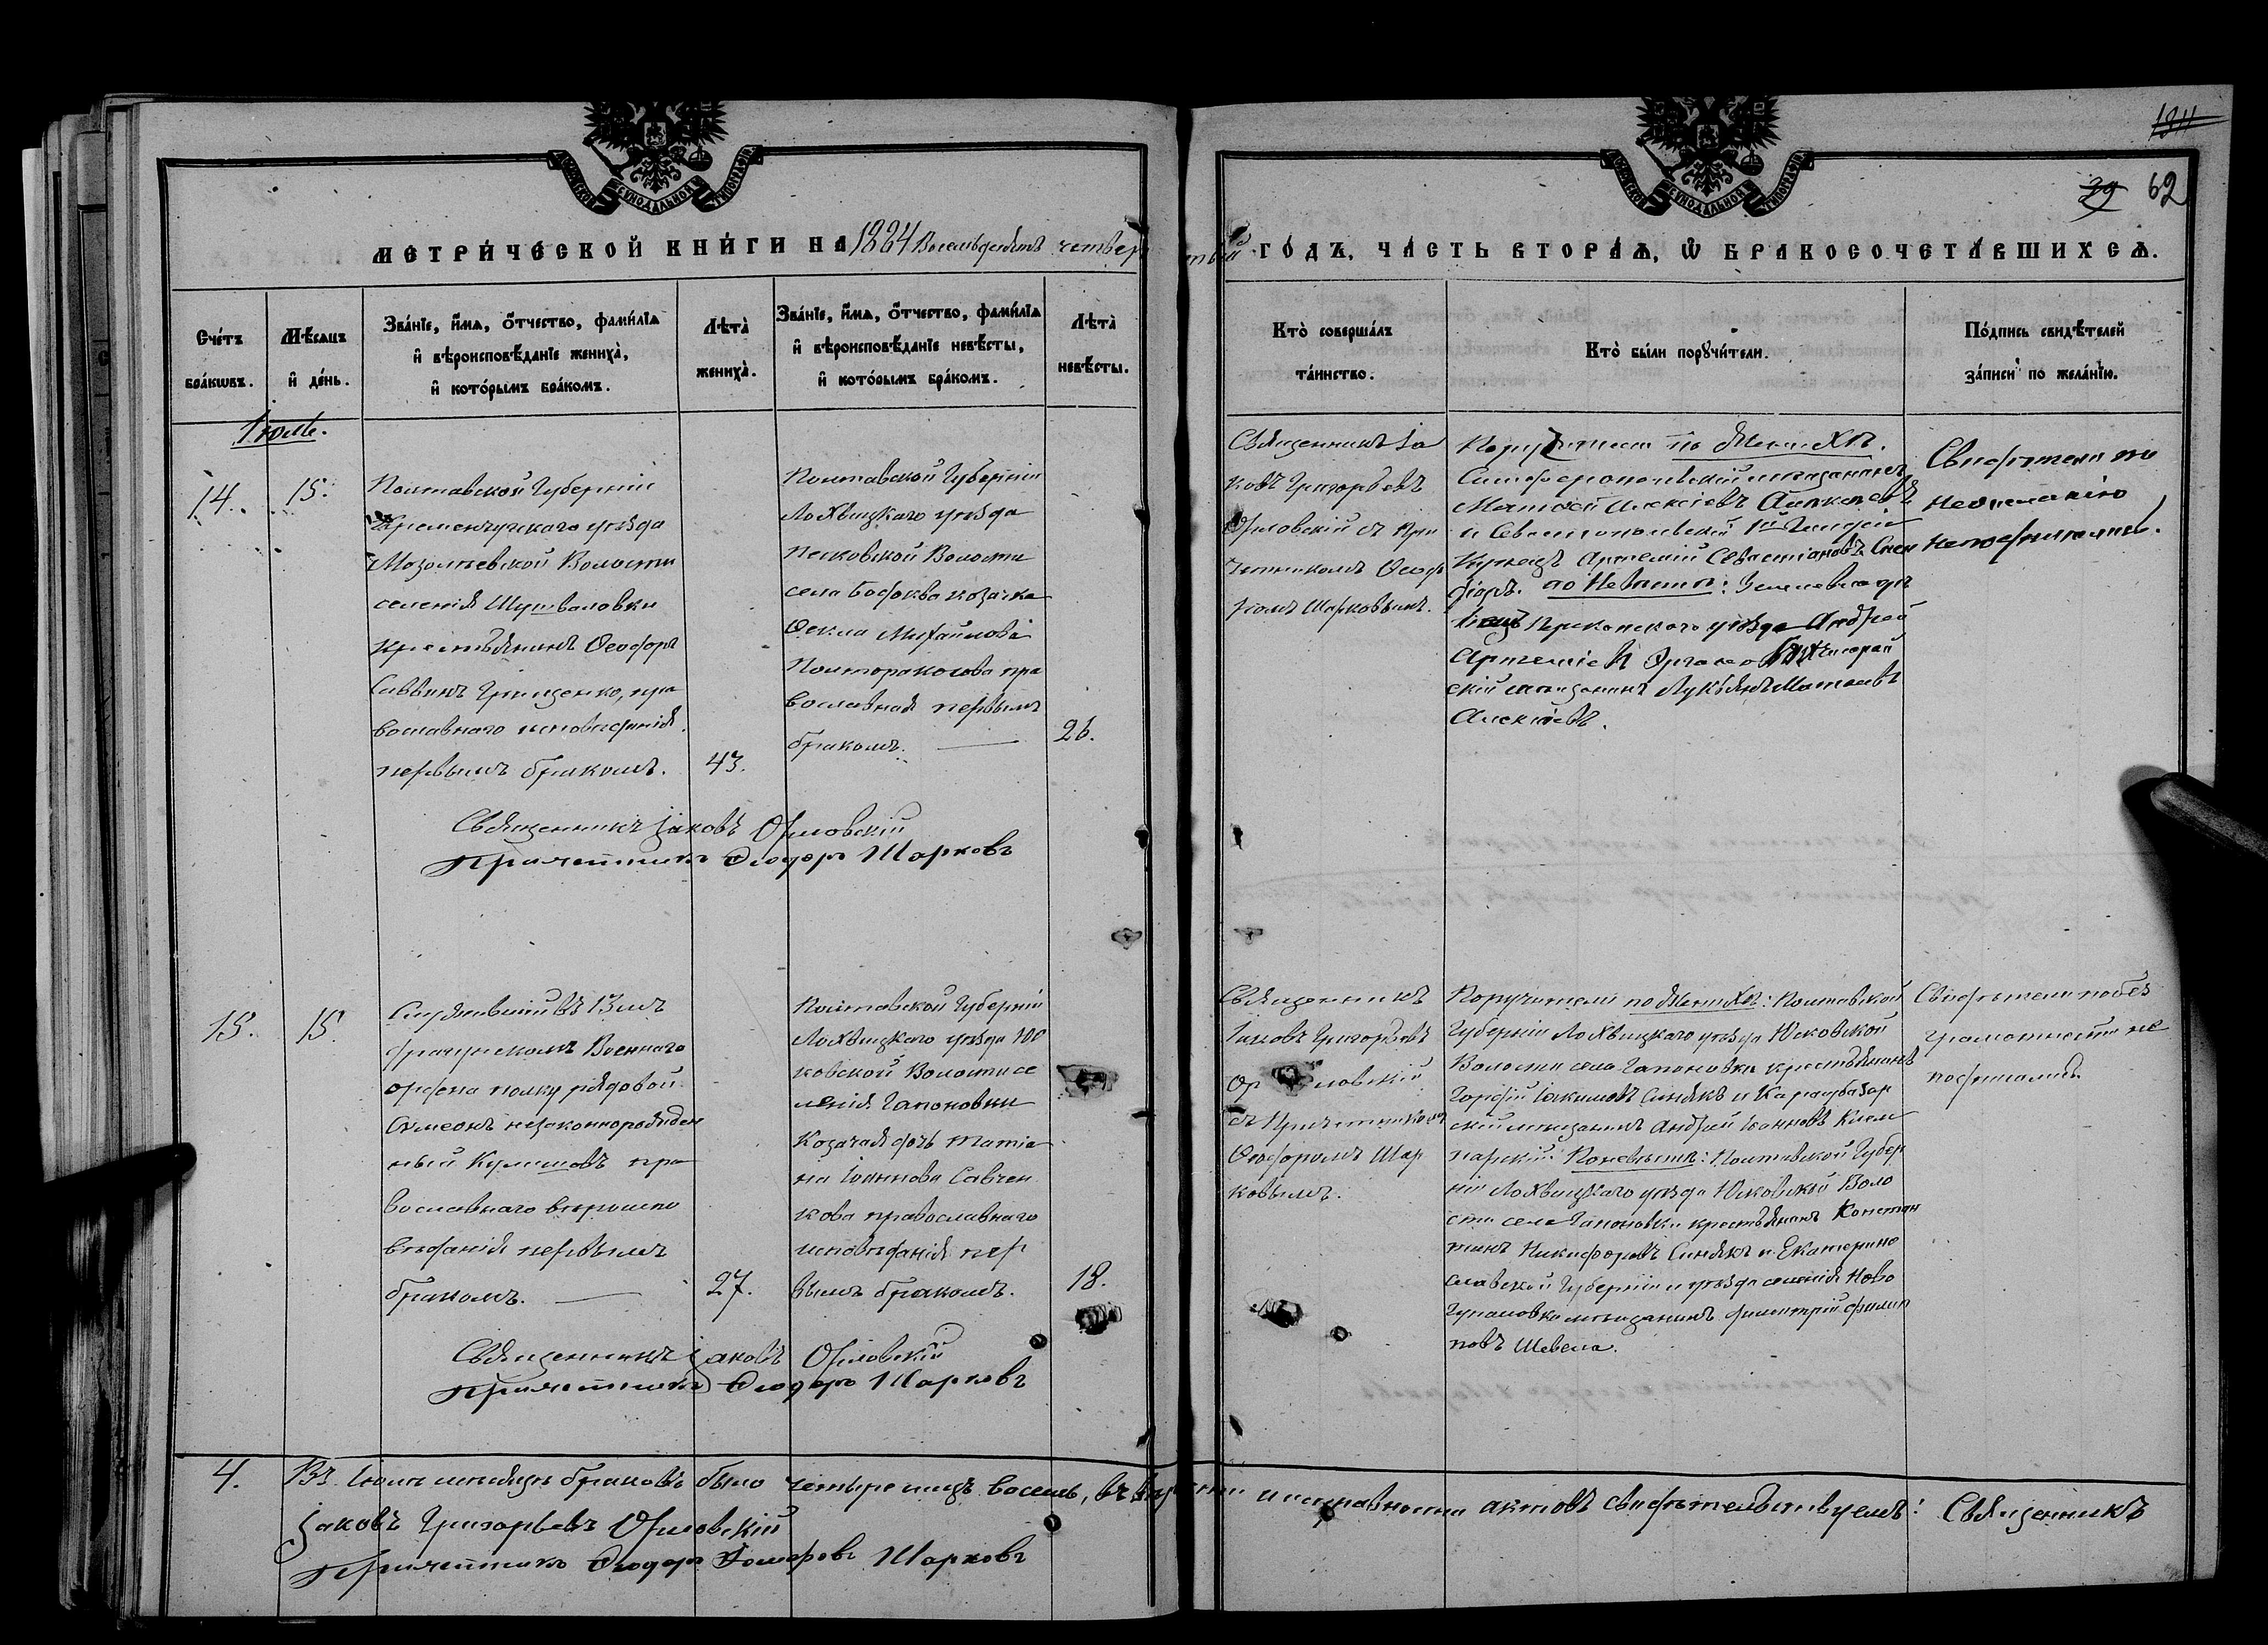 184
39 62
МЕТРИ́ЧЕСКОЙ КНИ́ГИ НА 1884 Восемьдесятъ четвертый ГО́ДЪ, ЧА́СТЬ ВТОРА́Ѧ, Ѽ БРАКОСОЧЕТА́ВШИХСѦ.
Сче́тъ бра́кѡвъ.
Мѣ́сѧцъ и҆ де́нь.
Зва́нїе, и҆́мѧ, ѻ҆́тчество, фамѝлїѧ
и҆ вѣроисповѣ́данїе жениха̀,
и҆ кото́рымъ бра́комъ.
Лѣ̀та жениха̀.
Зва́нїе, и҆́мѧ, ѻ҆́тчество, фамѝлїѧ
и҆ вѣроисповѣ́данїе невѣ́сты,
и҆ кото́рымъ бра́комъ.
Лѣ̀та невѣ́сты.
Кто̀ соверша́лъ та́инство.
Кто̀ бы́ли порꙋчи́тели.
По́дпись свидѣ́телей
за́писи по жела́нїю.
Іюль.
14. 15.
Полтавской Губерніи
Кременчугскаго уѣзда
Мозолѣевской Волости
селенія Шушваловки
крестьянинъ Ѳеодоръ
Саввинъ Грищенко, пра
вославнаго исповеданія
первымъ бракомъ.
43.
Полтавской Губерніи
Лохвицкаго уѣзда
Песковской Волости
села Бодаква козачка
Ѳекла Михайлова
Полторакосова пра
вославная первымъ
бракомъ.
26.
Священникъ Іа
ковъ Григорьевъ
Орловскій съ при
четникомъ Ѳеодо
ромъ Шарковымъ.
Поручители по Женихѣ.
Симферопольскій мещанинъ
Матѳей Алексіевъ
и Севастопольскій 1й Гильдіи
Купецъ Артемій Севастіановъ
по Невѣстѣ: Землевладѣ
лецъ Перекопскаго уѣзда Андрей
скій мещанинъ Лукьянъ Матвеевъ
Алексіевъ.
Свидѣтели по
нежеланію
неподписались.
Священникъ Іаковъ Орловскій
Причетникъ Ѳеодоръ Шарковъ
15. 15.
Служившій въ 13мъ
драгунскомъ Военнаго
ордена полку рядовой
Сѵмеонъ незаконнорожден
ный Кулешовъ пра
вославнаго вероиспо
вѣданія первымъ
бракомъ.
27.
Полтавской Губерніи
Лохвицкаго уѣзда Юс
ковской Волости се
ленія Гапоновки
Козачая дочь Татіа
на Іоаннова Савчен
кова православнаго
исповѣданія пер
вымъ бракомъ.
18.
Священникъ
Іаковъ Григорьевъ
Орловскій
съ Причетникомъ
Ѳеодоромъ Шар
ковымъ.
Поручители по Женихѣ: Полтавской
Губерніи Лохвицкаго уѣзда Юсковской
Волости села Гапоновки крестьянинъ
Гордій Іакимовъ Синякъ и Карасубазар
скій мещанинъ Андрей Іоанновъ
По невѣстѣ: Полтавской Губер
ніи Лохвицкаго уѣзда Юсковской Воло
сти села Гапоновки крестьянинъ Констан
тинъ Никифоровъ Синякъ и Екатерино
славской Губерніи и уѣзда селенія Ново
мещанинъ Димитрій Филип
повъ Шевела.
Свидѣтели побез
грамотности не
подписались.
Священникъ Іаковъ Орловскій
Причетникъ Ѳеодоръ Шарковъ
4. Въ Іюлѣ мѣсяцѣ браковъ было четыре лицъ восемь, въ и исправности актовъ свидѣтельствуемъ: Священникъ
Іаковъ Григорьевъ Орловскій
Причетникъ Ѳеодоръ Шарковъ